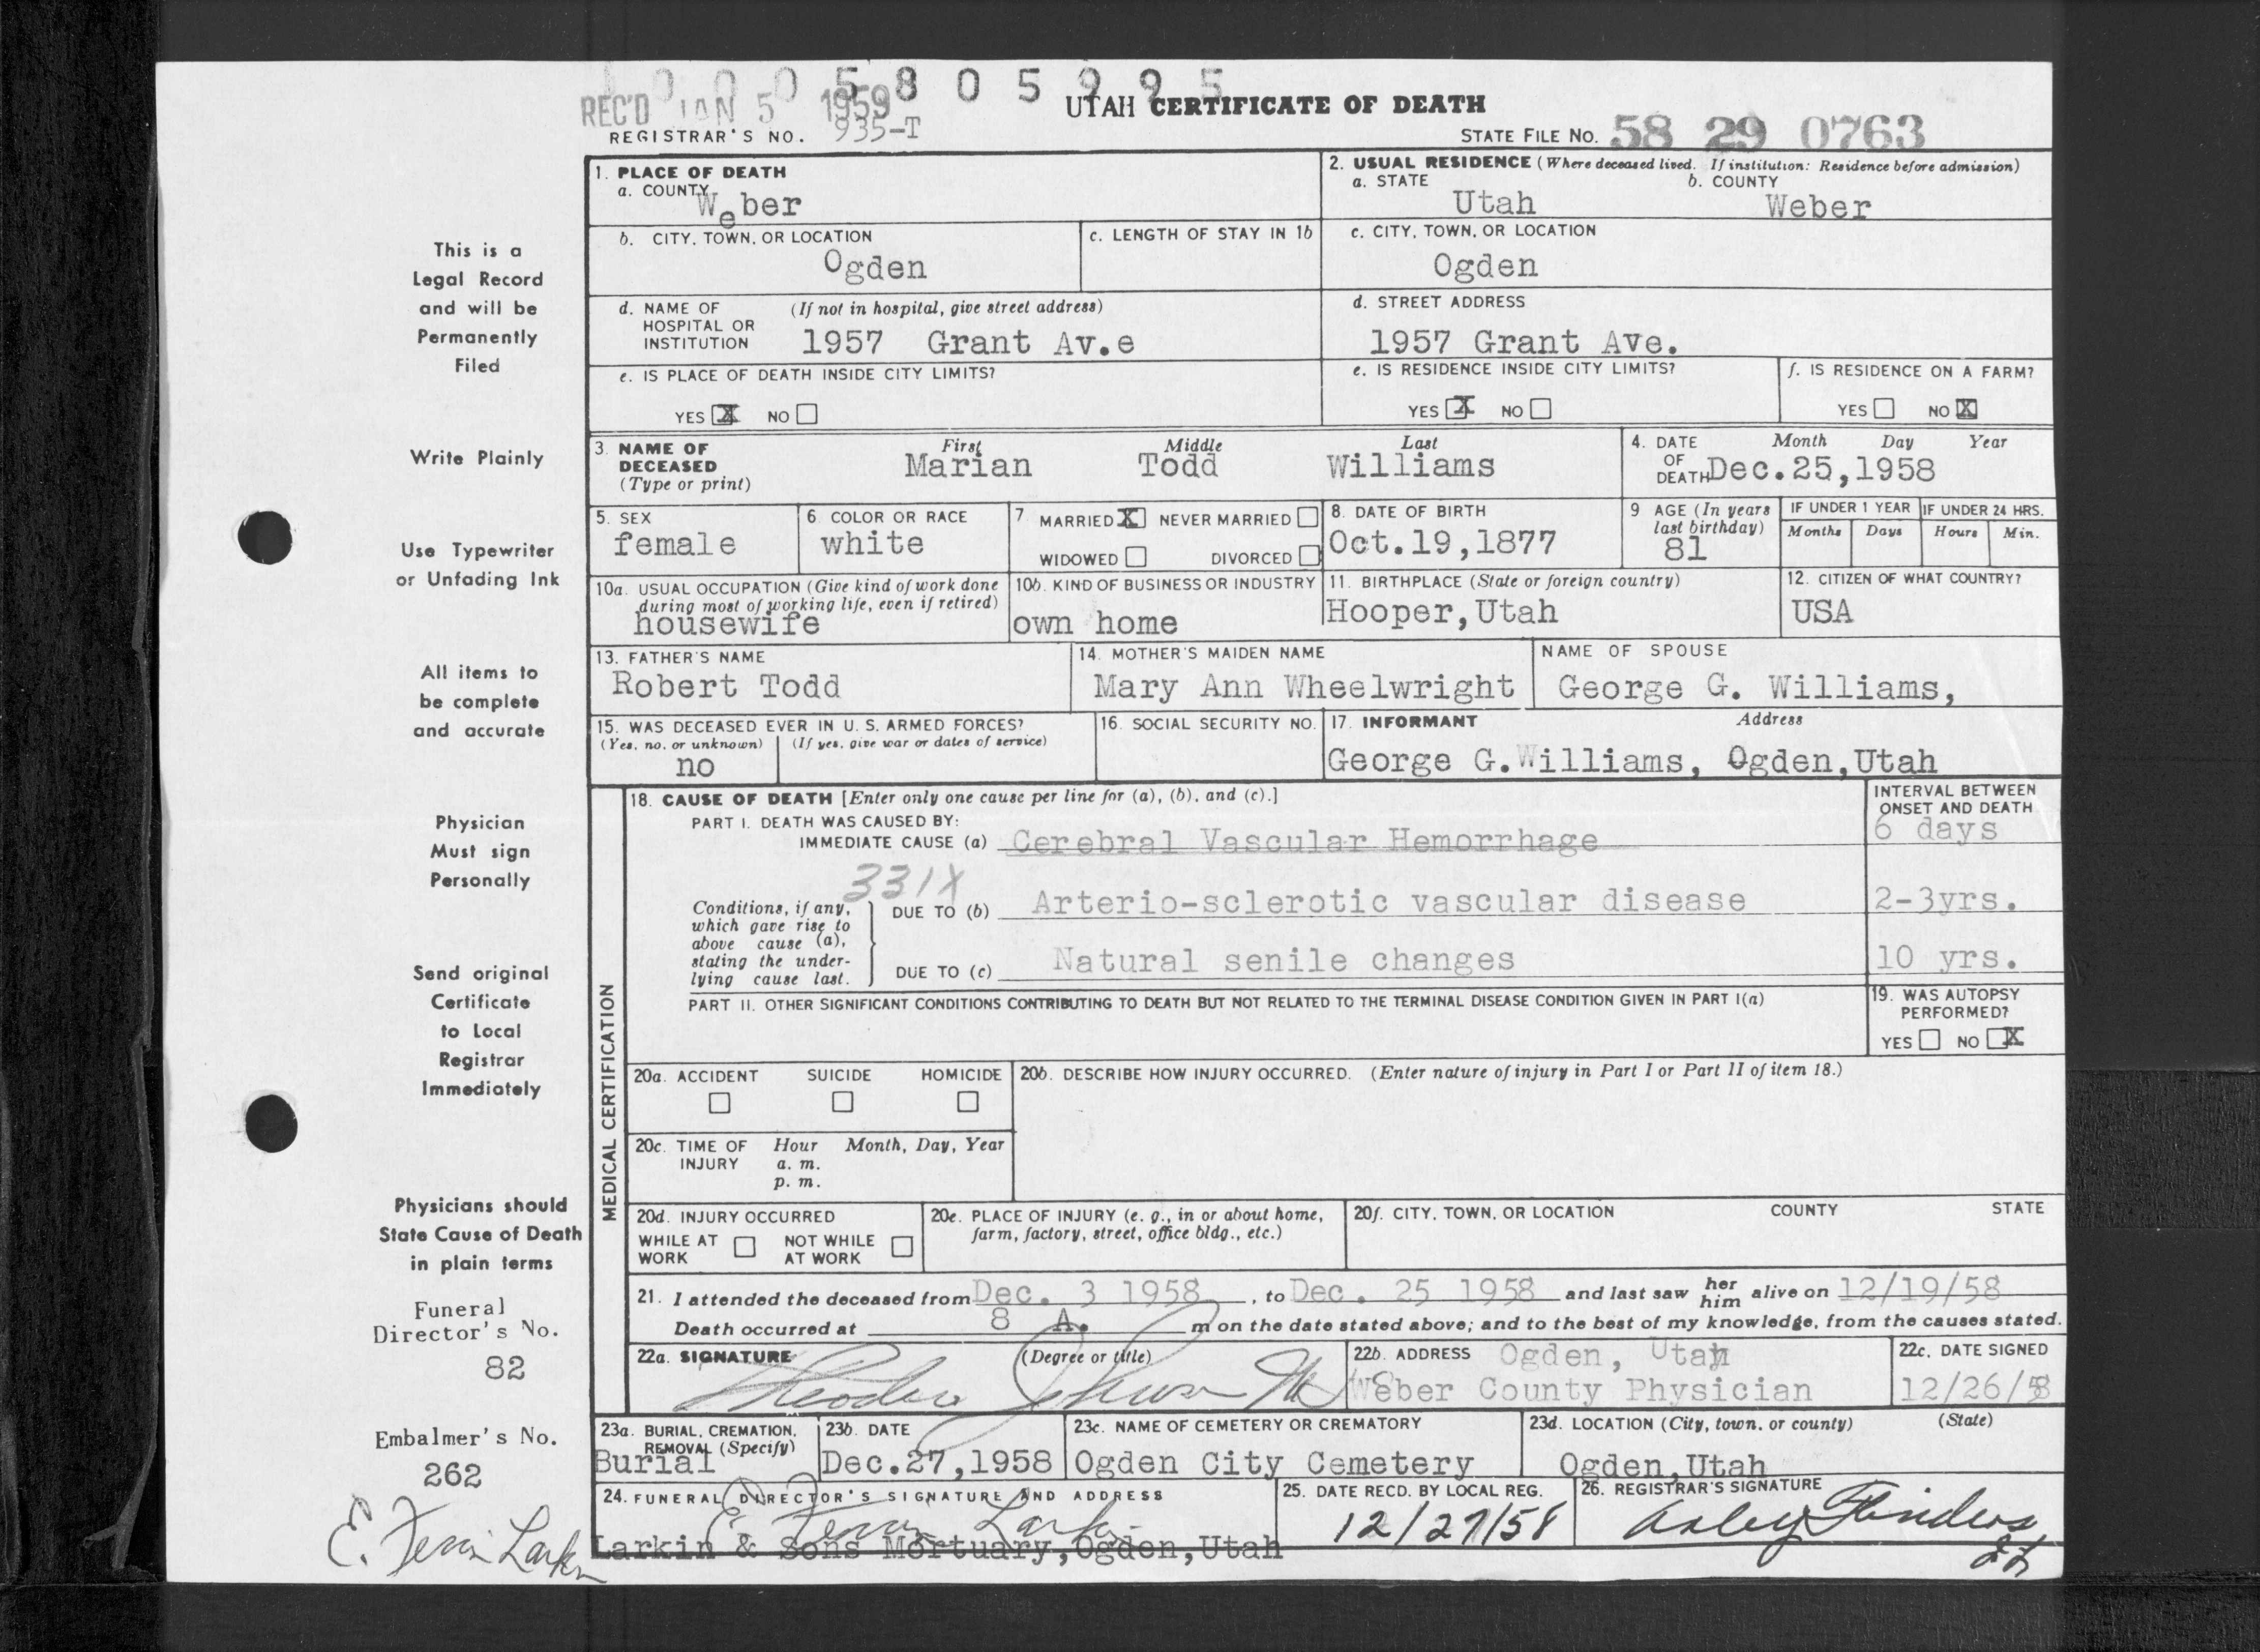 REC'D JAN 5 1959
5 8 0 5 9 9 5
UTAH CERTIFICATE OF DEATH
REGISTRAR'S NO. 935-T
STATE FILE NO. 58 29 0763
1. PLACE OF DEATH
a. COUNTY
Weber
2. USUAL RESIDENCE (Where deceased lived. If institution: Residence before admission)
a. STATE b. COUNTY
Utah Weber
b. CITY, TOWN, OR LOCATION
Ogden
c. LENGTH OF STAY IN 1b
c. CITY, TOWN, OR LOCATION
Ogden
d. NAME OF HOSPITAL OR INSTITUTION (If not in hospital, give street address)
1957 Grant Av.e
d. STREET ADDRESS
1957 Grant Ave.
e. IS PLACE OF DEATH INSIDE CITY LIMITS?
YES X NO
e. IS RESIDENCE INSIDE CITY LIMITS?
YES X NO
f. IS RESIDENCE ON A FARM?
YES NO X
3. NAME OF DECEASED (Type or print)
First Middle Last
Marian Todd Williams
4. DATE OF DEATH Month Day Year
Dec.25,1958
5. SEX
female
6. COLOR OR RACE
white
7 MARRIED X NEVER MARRIED
WIDOWED DIVORCED
8. DATE OF BIRTH
Oct.19,1877
9 AGE (In years last birthday)
81
IF UNDER 1 YEAR
Months Days
IF UNDER 24 HRS.
Hours Min.
10a. USUAL OCCUPATION (Give kind of work done during most of working life, even if retired)
housewife
10b. KIND OF BUSINESS OR INDUSTRY
own home
11. BIRTHPLACE (State or foreign country)
Hooper,Utah
12. CITIZEN OF WHAT COUNTRY?
USA
13. FATHER'S NAME
Robert Todd
14. MOTHER'S MAIDEN NAME
Mary Ann Wheelwright
NAME OF SPOUSE
George G. Williams,
15. WAS DECEASED EVER IN U. S. ARMED FORCES?
(Yes, no, or unknown) (If yes, give war or dates of service)
no
16. SOCIAL SECURITY NO.
17. INFORMANT Address
George G.Williams, Ogden,Utah
MEDICAL CERTIFICATION
18. CAUSE OF DEATH [Enter only one cause per line for (a), (b), and (c).]
INTERVAL BETWEEN ONSET AND DEATH
PART I. DEATH WAS CAUSED BY:
IMMEDIATE CAUSE (a) Cerebral Vascular Hemorrhage 6 days
331X
Conditions, if any, which gave rise to above cause (a), stating the underlying cause last.
DUE TO (b) Arterio-sclerotic vascular disease 2-3yrs.
DUE TO (c) Natural senile changes 10 yrs.
PART II. OTHER SIGNIFICANT CONDITIONS CONTRIBUTING TO DEATH BUT NOT RELATED TO THE TERMINAL DISEASE CONDITION GIVEN IN PART I(a)
19. WAS AUTOPSY PERFORMED?
YES NO X
20a. ACCIDENT SUICIDE HOMICIDE
20b. DESCRIBE HOW INJURY OCCURRED. (Enter nature of injury in Part I or Part II of item 18.)
20c. TIME OF INJURY Hour Month, Day, Year
a. m.
p. m.
20d. INJURY OCCURRED
WHILE AT WORK NOT WHILE AT WORK
20e. PLACE OF INJURY (e. g., in or about home, farm, factory, street, office bldg., etc.)
20f. CITY, TOWN, OR LOCATION COUNTY STATE
21. I attended the deceased from Dec. 3 1958, to Dec. 25 1958 and last saw her him alive on 12/19/58
Death occurred at 8 A. m on the date stated above; and to the best of my knowledge, from the causes stated.
22a. SIGNATURE (Degree or title)
22b. ADDRESS Ogden, Utah
Weber County Physician
22c. DATE SIGNED
12/26/58
23a. BURIAL, CREMATION, REMOVAL (Specify)
Burial
23b. DATE
Dec.27,1958
23c. NAME OF CEMETERY OR CREMATORY
Ogden City Cemetery
23d. LOCATION (City, town, or county) (State)
Ogden,Utah
24. FUNERAL DIRECTOR'S SIGNATURE AND ADDRESS
Larkin & Sons Mortuary,Ogden,Utah
25. DATE RECD. BY LOCAL REG.
12/27/58
26. REGISTRAR'S SIGNATURE
This is a
Legal Record
and will be
Permanently
Filed
Write Plainly
Use Typewriter
or Unfading Ink
All items to
be complete
and accurate
Physician
Must sign
Personally
Send original
Certificate
to Local
Registrar
Immediately
Physicians should
State Cause of Death
in plain terms
Funeral
Director's No.
82
Embalmer's No.
262